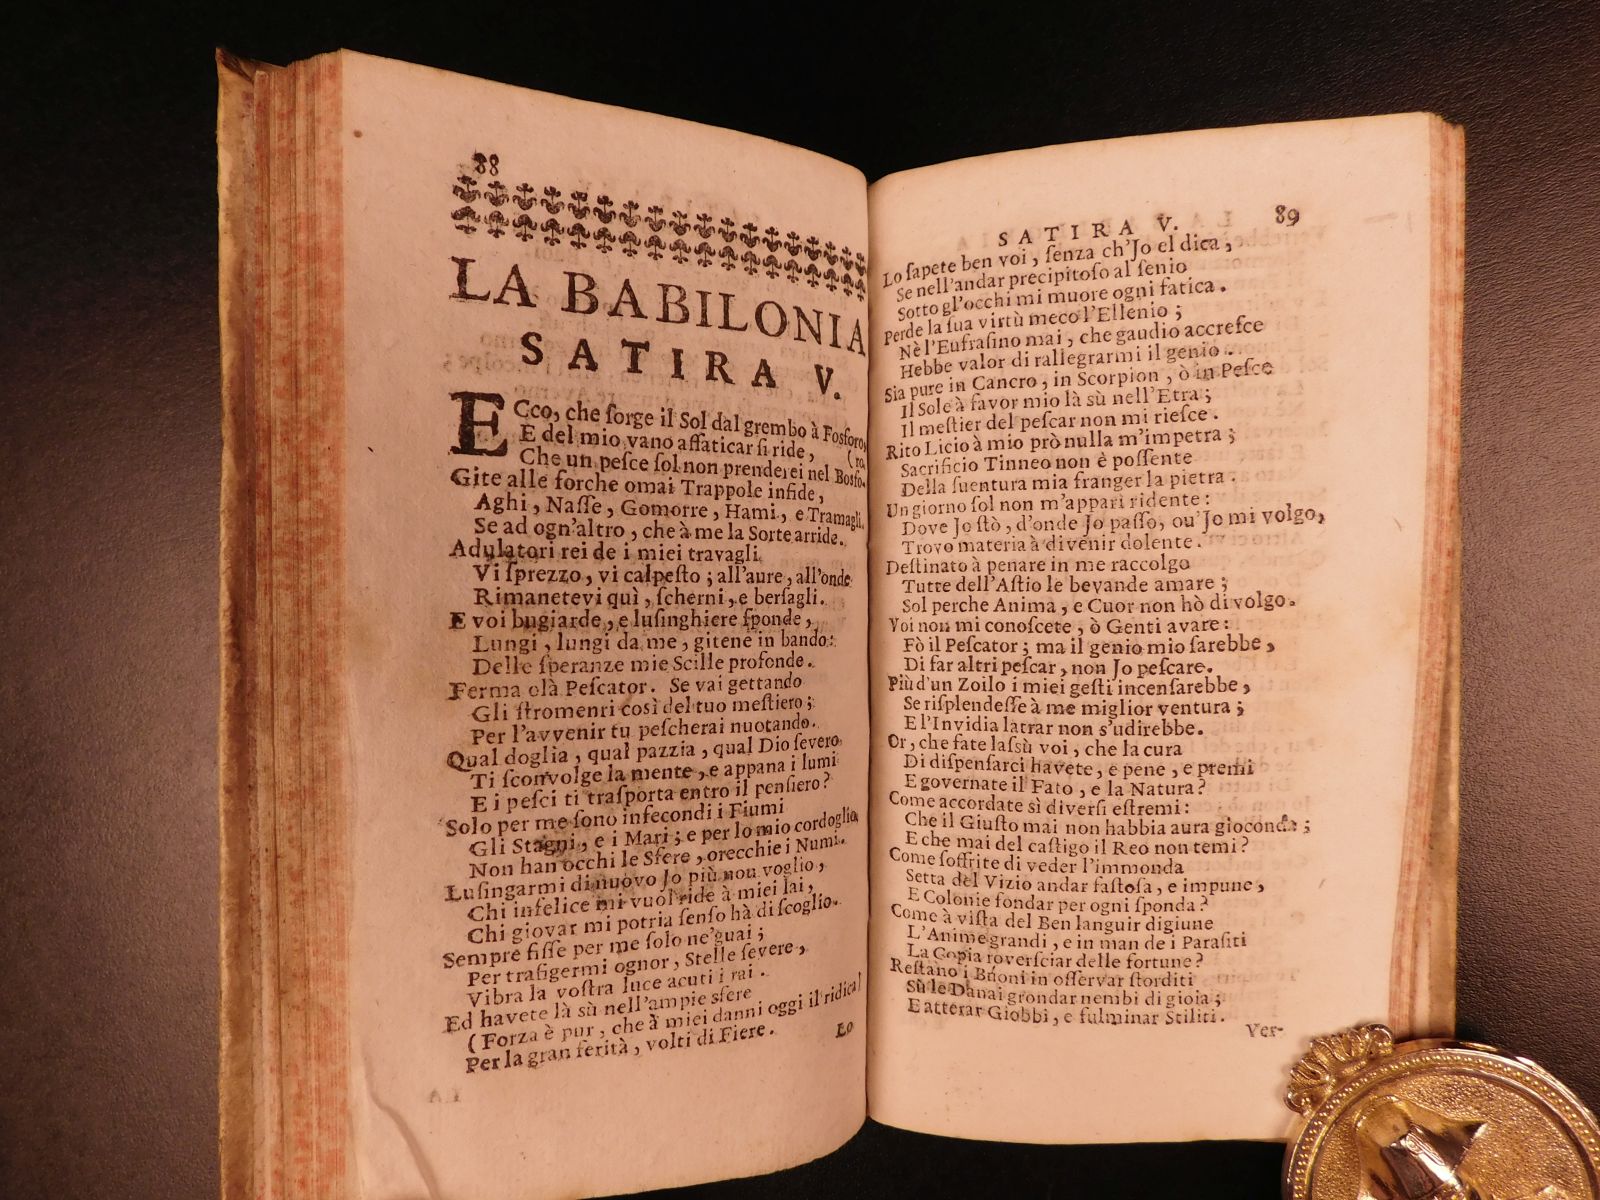 88
LA BABILONIA
SATIRA V.
ECco, che ſorge il Sol dal grembo à Fosforo,
E del mio vano aſſaticar ſi ride, (ro,
Che un peſce ſol non prenderei nel Bosfo-
Gite alle forche omai Trappole infide,
Aghi, Naſſe, Gomorre, Hami, e Tramagli.
Se ad ogn'altro, che à me la Sorte arride.
Adulatori rei de i miei travagli
Vi ſprezzo, vi calpeſto; all'aure, all'onde
Rimanetevi quì, ſcherni, e berſagli.
E voi bugiarde, e luſinghiere ſponde,
Lungi, lungi da me, gitene in bando:
Delle ſperanze mie Scille profonde.
Ferma olà Peſcator. Se vai gettando
Gli ſtromenri così del tuo meſtiero;
Per l'avvenir tu peſcherai nuotando.
Qual doglia, qual pazzia, qual Dio ſevero
Ti ſconvolge la mente, e appana i lumi
E i peſci ti traſporta entro il penſiero?
Solo per me ſono infecondi i Fiumi
Gli Stagni, e i Mari; e per lo mio cordoglio,
Non han occhi le Sfere, orecchie i Numi.
Luſingarmi di nuovo Jo più nou voglio,
Chi infelice mi vuol ride à miei lai,
Chi giovar mi potria ſenſo hà di ſcoglio.
Sempre fiſſe per me ſolo ne'guai;
Per trafigermi ognor, Stelle ſevere,
Vibra la voſtra luce acuti i rai.
Ed havete là sù nell'ampie sfere
(Forza è pur, che à miei danni oggi il ridica)
Per la gran ferità, volti di Fiere.
Lo
SATIRA V. 89
Lo ſapete ben voi, ſenza ch'Jo el dica,
Se nell'andar precipitoſo al ſenio
Sotto gl'occhi mi muore ogni fatica.
Perde la ſua virtù meco l'Ellenio;
Nè l'Eufraſino mai, che gaudio accreſce
Hebbe valor di rallegrarmi il genio.
Sia pure in Cancro, in Scorpion, ò in Peſce
Il Sole à favor mio là sù nell'Etra;
Il meſtier del peſcar non mi rieſce.
Rito Licio à mio prò nulla m'impetra;
Sacrificio Tinneo non è poſſente
Della ſuentura mia franger la pietra.
Un giorno ſol non m'apparì ridente:
Dove Jo ſtò, d'onde Jo paſſo, ou'Jo mi volgo,
Trovo materia à divenir dolente.
Deſtinato à penare in me raccolgo
Tutte dell'Aſtio le bevande amare;
Sol perche Anima, e Cuor non hò di volgo.
Voi non mi conoſcete, ò Genti avare:
Fò il Peſcator; ma il genio mio ſarebbe,
Di far altri peſcar, non Jo peſcare.
Più d'un Zoilo i miei geſti incenſarebbe,
Se riſplendeſſe à me miglior ventura;
E l'Invidia latrar non s'udirebbe.
Or, che fate laſsù voi, che la cura
Di diſpenſarci havete, e pene, e premi
E governate il Fato, e la Natura?
Come accordate sì diverſi eſtremi:
Che il Giuſto mai non habbia aura gioconda;
E che mai del caſtigo il Reo non temi?
Come ſoffrite di veder l'immonda
Setta del Vizio andar faſtoſa, e impune,
E Colonie fondar per ogni ſponda?
Come à viſta del Ben languir digiune
L'Anime grandi, e in man de i Paraſiti
La Copia roverſciar delle fortune?
Reſtano i Buoni in oſſervar ſtorditi
Sù le Danai grondar nembi di gioia;
E atterar Giobbi, e fulminar Stiliti.
Ver-